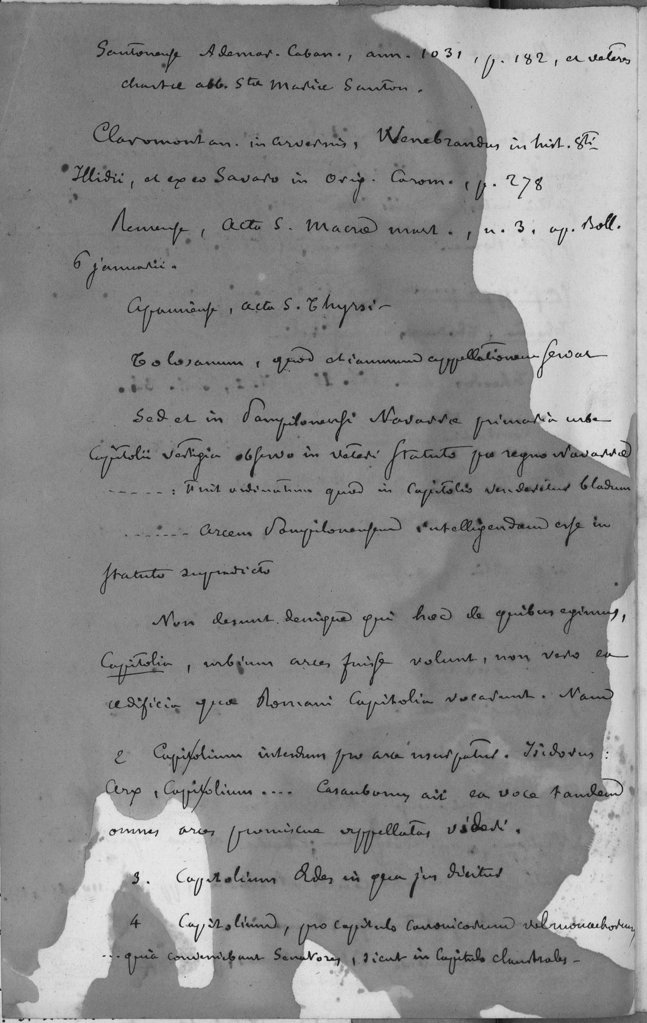 Santonense Ademar. Caban., ann. 1031, p. 182, et veteres
chartæ abb. Stæ Mariæ Santon.
Claromontan. in arvernis, Wenebrandus in hist. Sti
Illidii, et ex eo Savaro in Orig. Carom., p. 278
Remense, Acta S. Macræ mart., n. 3. ap. Boll.
6 januarii.
Apamiense, acta S. Thyrsi-
Tolosanum, quod etiamnum appellationem servat
Sed et in Pampilonensi Navarræ primaria urbe
Capitolii vestigia observo in veteri statuto pro regno Navarræ
- - - - - : Fuit ordinatum quod in Capitolio venderetur bladum
- - - - - - arcem Pampilonensem intelligendam esse in
statuto supradicto
Non desunt denique qui hæc de quibus egimus,
Capitolia, urbium arces fuisse volunt, non vero ea
ædificia quæ Romani Capitolia vocarunt. Nam
2 Capitolium interdum pro arce usurpatur. Isidorus:
Arx, Capitolium .... Casaubonus ait ea voce tandem
omnes arces promiscue appellatas videri.
3. Capitolium Ædes in qua jus dicitur
4 Capitolium, pro capitulo canonicorum vel monachorum
... quia conveniebant Senatores, sicut in Capitulo claustrales -